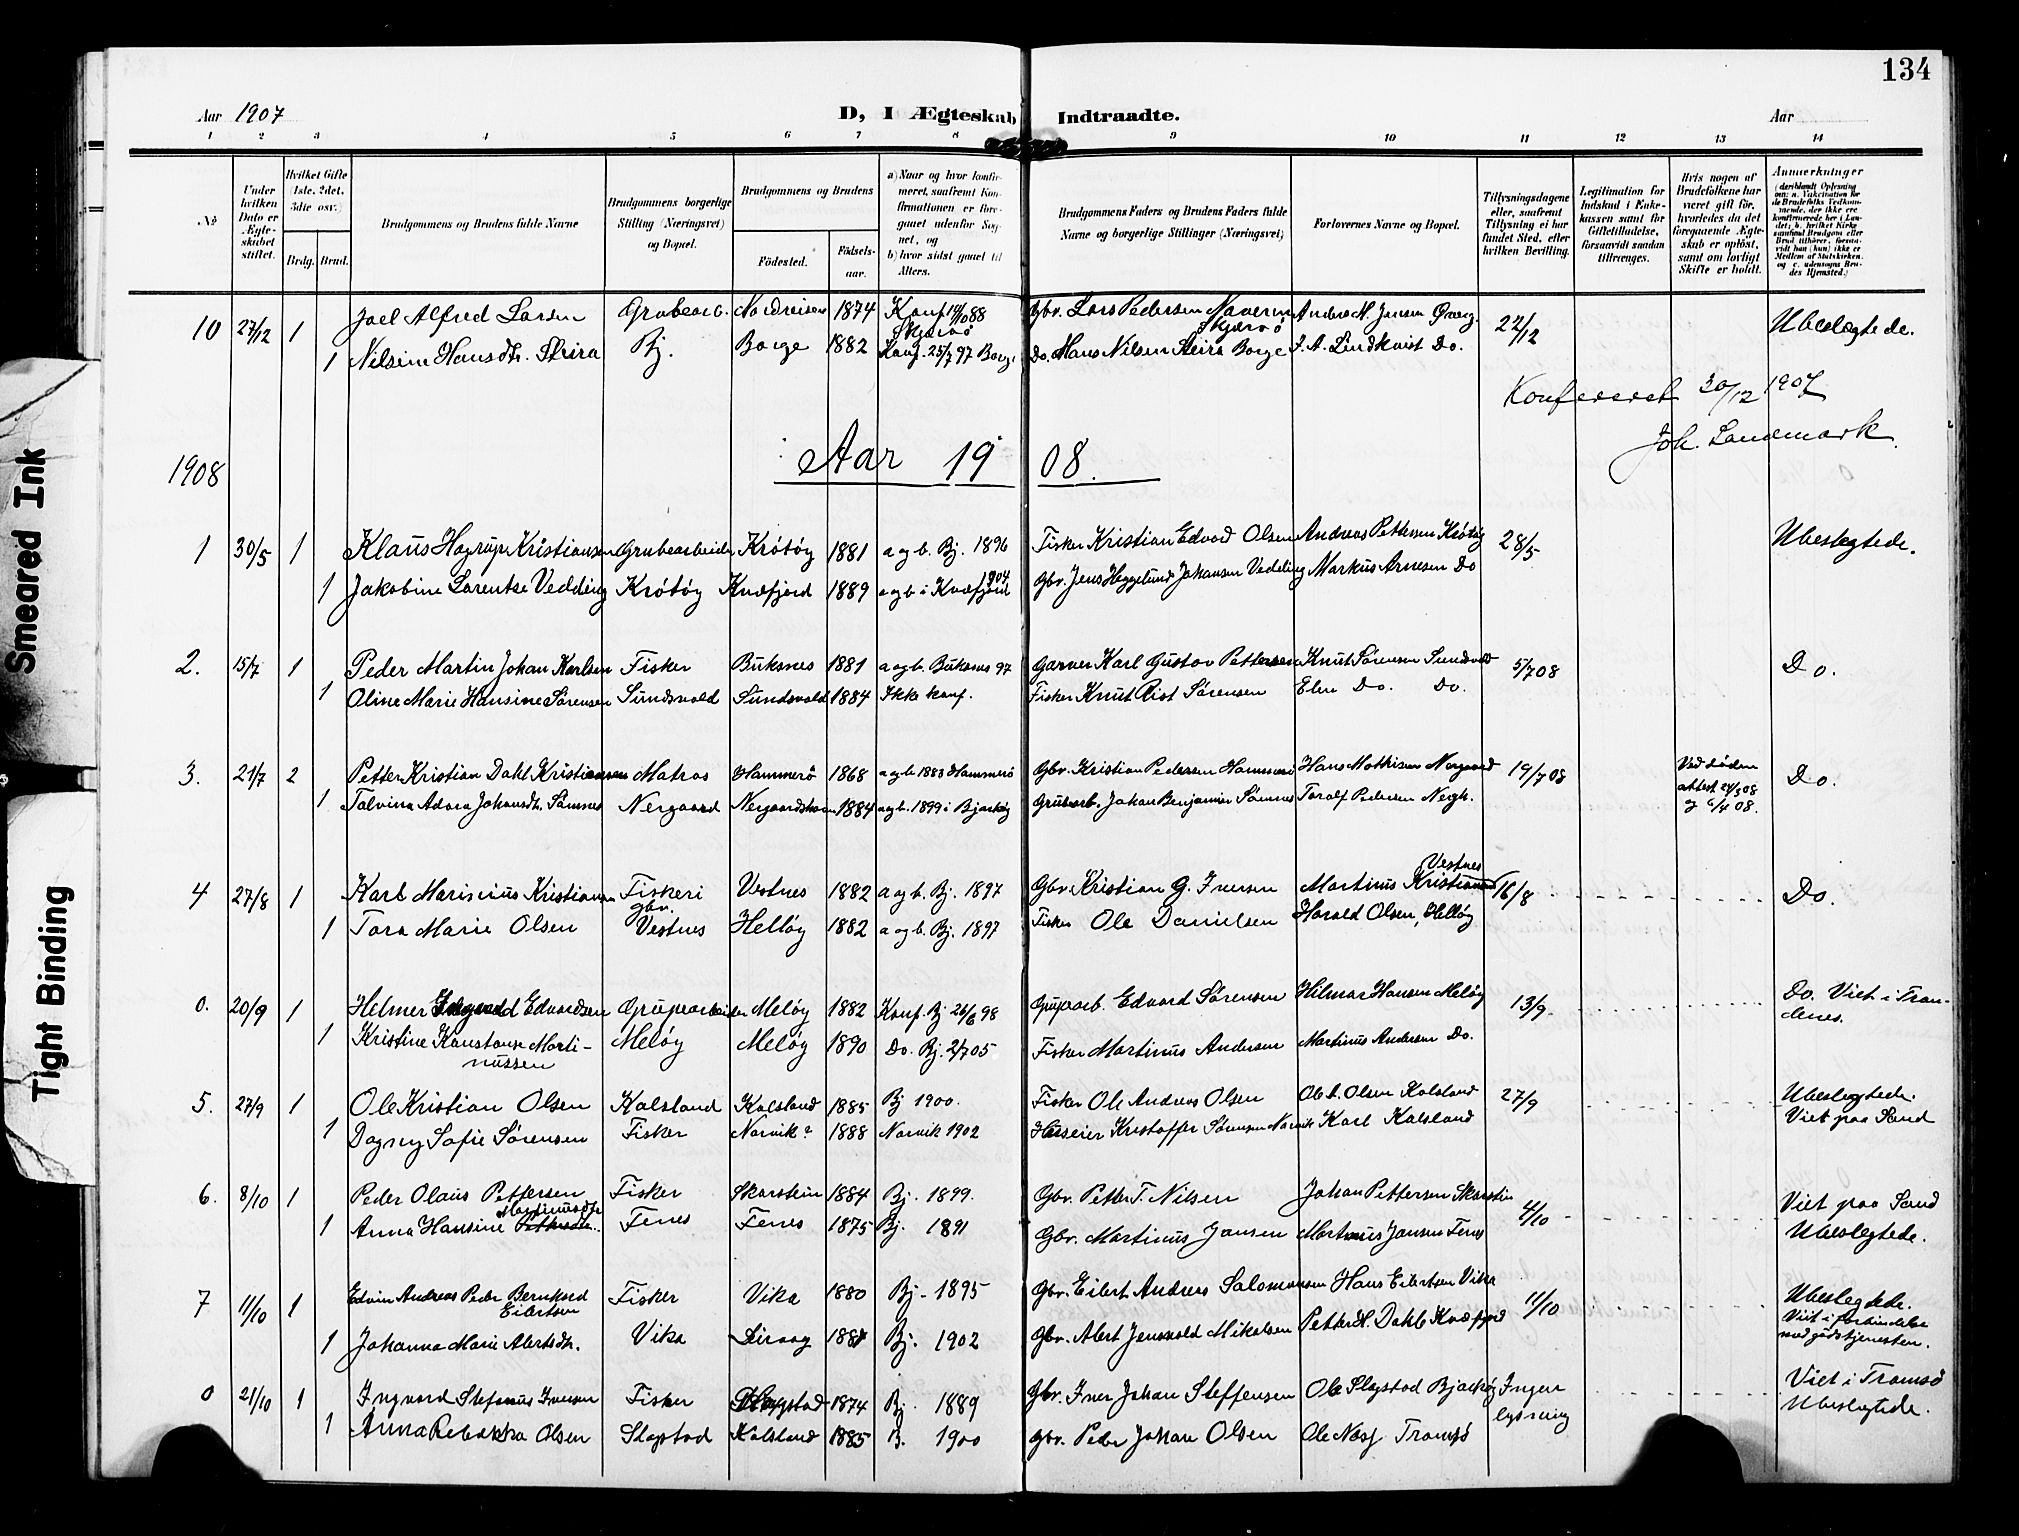 134
Aar 1907 D, I Ægteskab Indtraadte. Aar
1 2 3 4 5 6 7 8 9 10 11 12 13 14
No
Under hvilken Dato er Ægteskabet stiftet.
Hvilket Gifte (1ste, 2det, 3die osv.)
Brdg. Brud.
Brudgommens og Brudens fulde Navne
Brudgommens borgerlige Stilling (Næringsvei) og Bopæl.
Brudgommens og Brudens
Födested. Födselsaar.
a) Naar og hvor konfirmeret, saafremt Konfirmationen er foregaaet udenfor Sognet, og b) hvor sidst gaaet til Alters.
Brudgommens Faders og Brudens Faders fulde Navne og borgerlige Stillinger (Næringsvei)
Forlovernes Navne og Bopæl.
Tillysningsdagene eller, saafremt Tillysning ei har fundet Sted, efter hvilken Bevilling.
Legitimation for Indskud i Enkekassen samt for Giftetilladelse, forsaavidt saadan tiltrænges.
Hvis nogen af Brudefolkene har været gift før, hvorledes da det foregaaende Ægteskab er opløst, samt om lovligt Skifte er holdt.
Anmerkninger
10 27/12 1 Joel Alfred Larsen Grubearb. Nordreisen 1874 Konf. Skjervö Gbv. Lars Pedersen 22/12 Ubeslægtede.
1 Nilsine Hansdtr. Bj. Borge 1882 Konf. 25/7 97 Borge Do. Hans Nilsen Borge J. A. Lindkvist Do.
Konfereret 30/12 1907
Joh. Landmark
1908 Aar 1908.
1 30/5 1 Klaus Hagrup Kristiansen Grubearbeider Krötöy 1881 a og b. Bj. 1896 Fisker Kristian Edvad Olsen Andreas Pettersen Krötöy 28/5 Ubeslegtede.
1 Jakobine Larentse Vedding Krötöy Kvæfjord 1889 a og b i Kvæfjord 904 Gbv. Jens Heggelund Johansen Vedding Markus Arnesen Do
2. 15/7 1 Peder Martin Johan Karlsen Fisker Buksnes 1881 a og b. Buksnes 97 Garver Karl Gustav Pettersen Knut Sørensen Sundsvold 5/7 08 Do.
1 Oline Marie Hansine Sørensen Sundsvold Sundsvold 1884 Ikke konf. Fisker Knut Rist Sørensen Do. Do.
3. 21/7 2 Petter Kristian Dahl Kristiansen Matros Hammerö 1868 a og b 1883 Hammerö Gbv. Kristian Pedersen Hammerö Hans Mathisen Nergaard 19/7 08 Ved döden attest 24/3 08 og 6/4 08. Do.
1 Talvina Adora Johansdtr. Sannes Nergaard 1884 a og b. 1899 i Bjarköy Grubarb. Johan Benjamin Toralf Pedersen Nergh.
4 27/8 1 Karl Marinius Kristiansen Fiskeri gbr. Vestnes 1882 a og b. Bj. 1897 Gbv. Kristian G. Iversen Martinus Kristiansen Vestnes 16/8 Do.
1 Tora Marie Olsen Vestnes Hellöy 1882 a og b. Bj. 1897 Fisker Ole Danielsen Harald Olsen, Hellöy
0. 20/9 1 Helmer Edvardsen Meløy 1882 Konf. Bj 26/6 98 Edvard Sørensen Hilmar Hansen Meløy 13/9 Do. Viet i Trondenes.
1 Kristine Konstanse Martinussen Meløy Meløy 1890 Do. Bj. 2/7 05 Fisker Martinus Andersen Martinus Andersen Do.
5. 27/9 1 Ole Kristian Olsen Kalsland Kalsland 1885 Bj 1900. Fisker Ole Andreas Olsen Ole A. Olsen Kalsland 27/9 Ubeslegtede. Viet paa Sand
1 Dagny Sofie Sørensen Fisker Narvik? 1888 Narvik 1902 Huseier Kristoffer Sørensen Narvik Karl Kalsland
6. 8/10 1 Peder Olaus Pettersen Fisker Skarstein 1884 Bj. 1899. Gbv. Petter T. Nilsen Johan Pettersen Skarstein 4/10 Viet paa Sand Ubeslegtede.
1 Anna Hansine Martinusdtr. Fenes Fenes 1875 Bj. 1891 Gbv. Martinus Jansen Martinus Jansen Fenes
7 11/10 1 Edvin Andreas Peder Bernhard Eilertsen Fisker Vika 1880 Bj. 1895 Gbv. Eilert Andreas Salomonsen Hans Eilertsen Vika 11/10 Ubeslegtede. Viet i forbindelse med gudstjenesten.
1 Johanna Marie Albertsdtr. Vika Bj. 1902 Gbv. Albert Jensvold Mikalsen Petter H. Dahle Kvæfjord
0 21/10 1 Ingvard Stefanus Iversen Fisker 1874 Bj. 1889 Gbv. Iver Johan Steffensen Ole Slagstad Bjarköy Ingen lysning Viet i Tromsö Ubeslegtede.
1 Anna Rebekka Olsen Slagstad Kalsland 1885 B. 1900 Gbv. Peder Johan Olsen Ole Næss Tromsö
Smeared Ink
Tight Binding